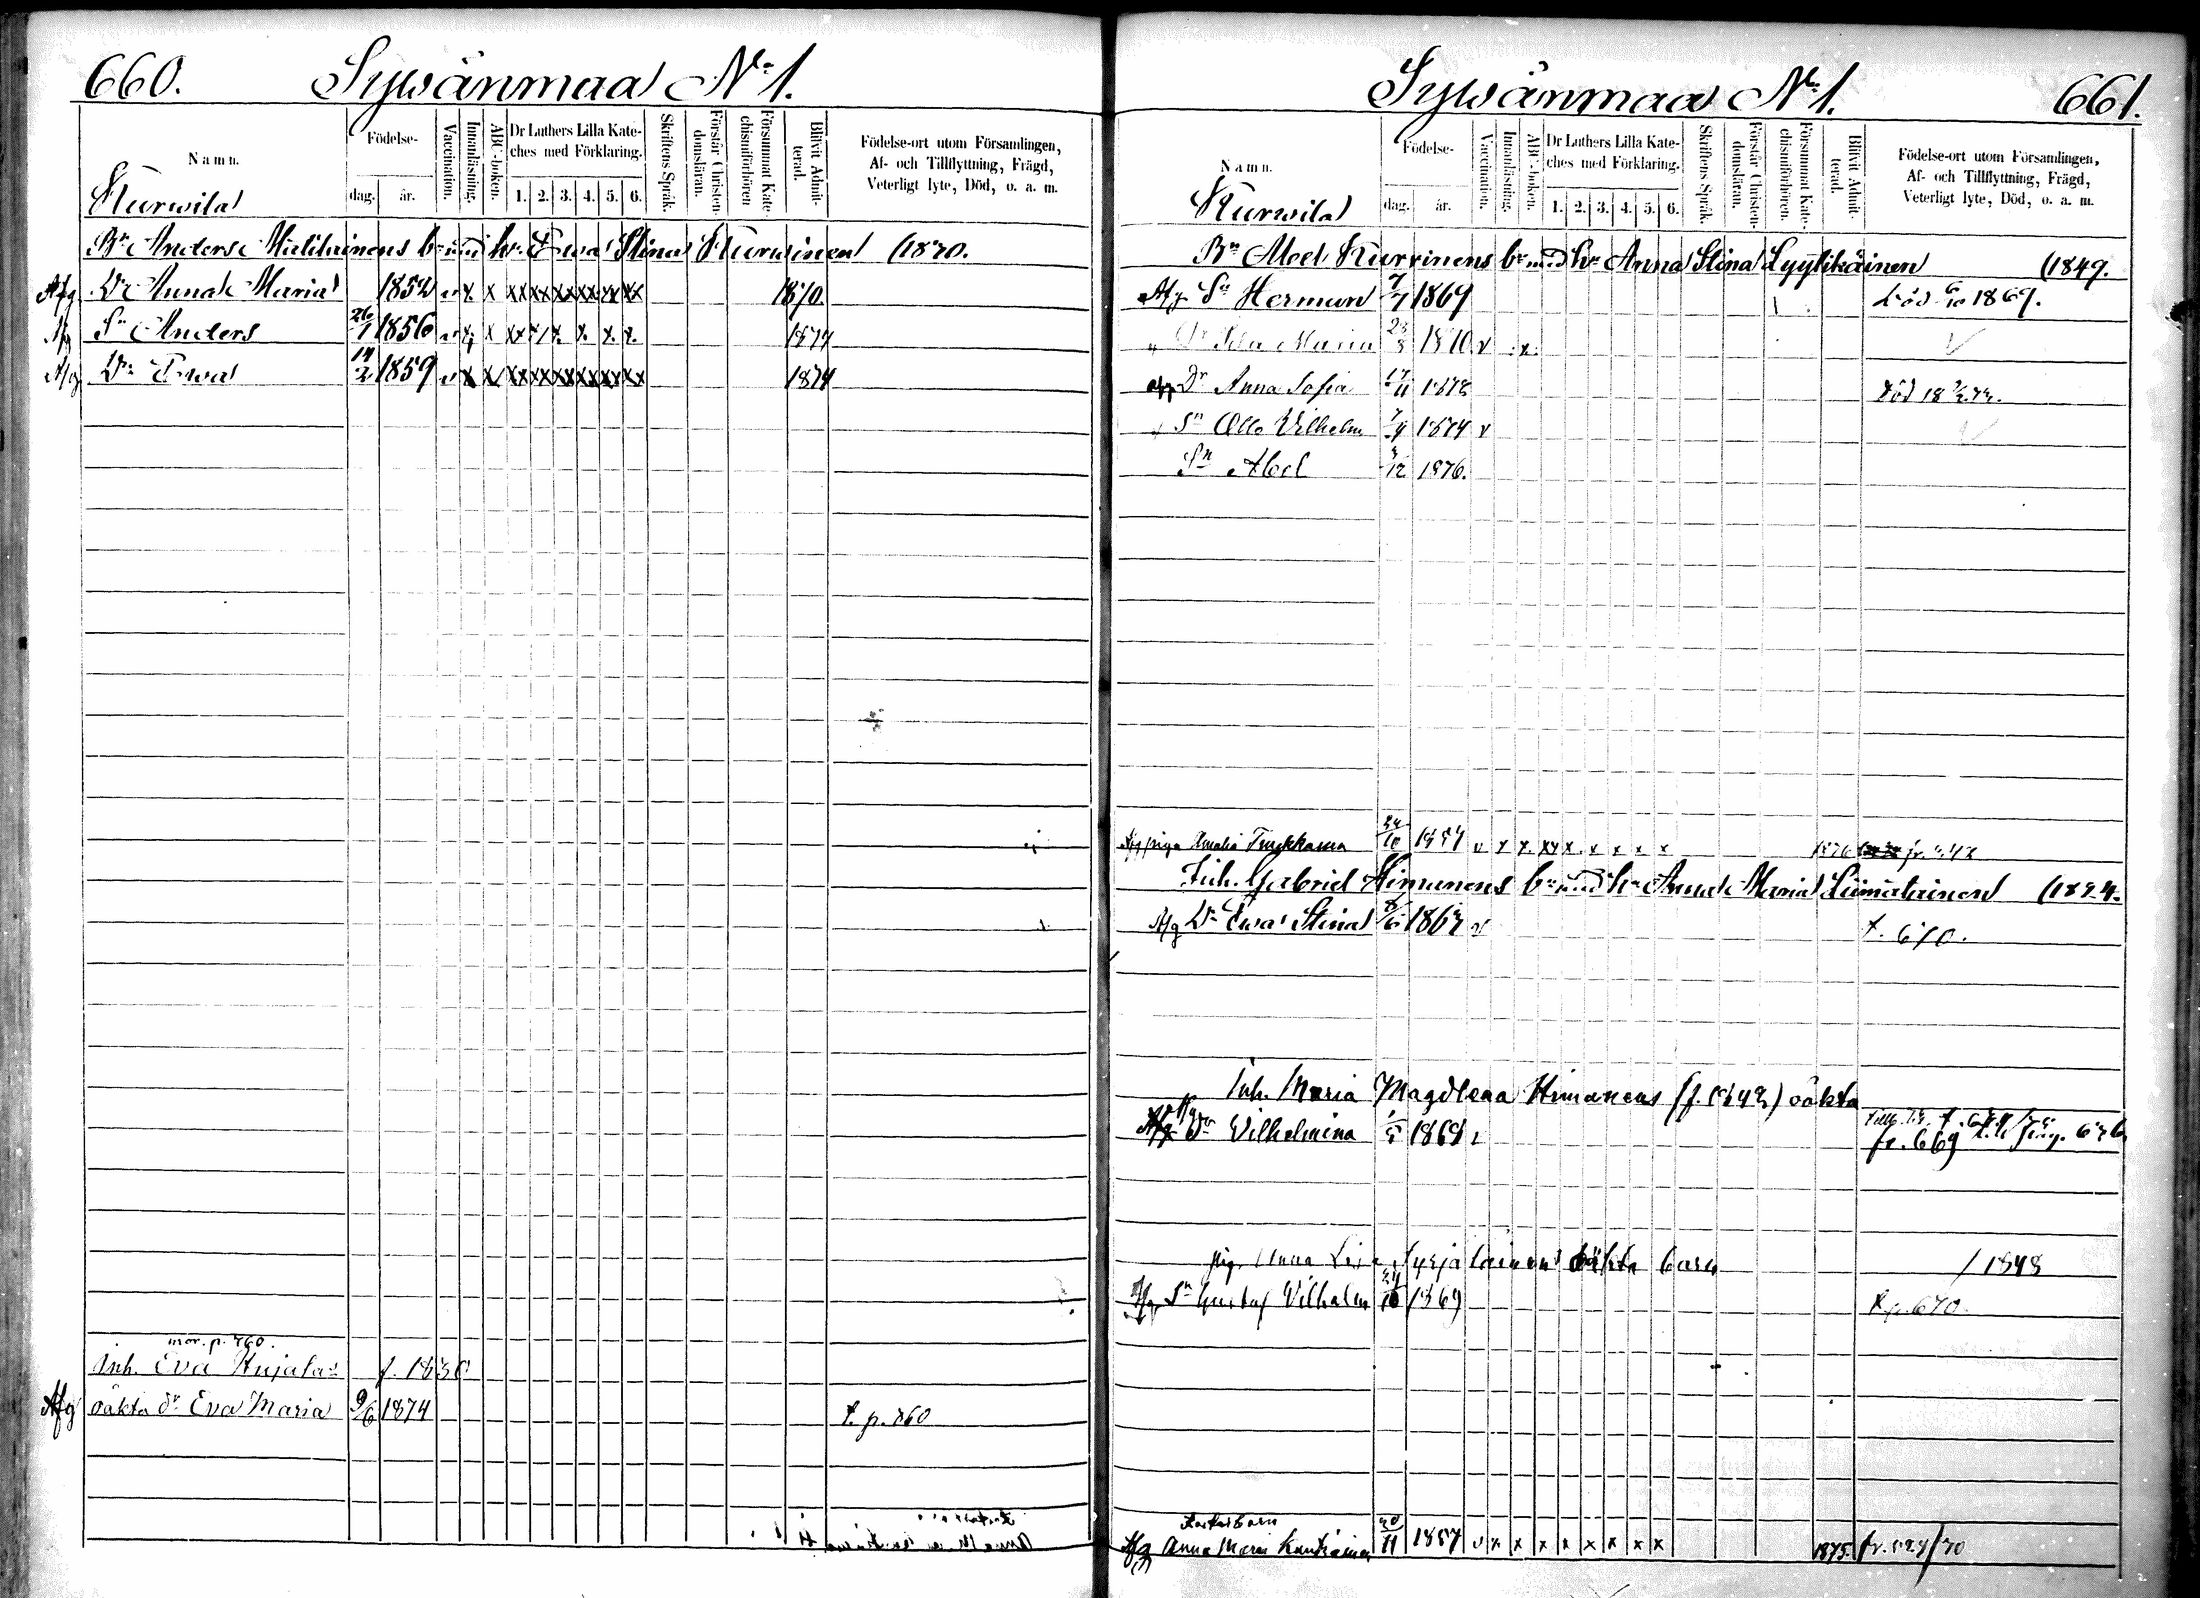 660. Sywänmaa No 1.
Namn.
Födelse-
dag. år.
Vaccination.
Innanläsning.
ABC-boken.
Dr Luthers Lilla Kate-
ches med Förklaring.
1. 2. 3. 4. 5. 6.
Skriftens Språk.
Förstår Christen-
domsläran.
Försummat Kate-
chismiförhören
Blifvit Admit-
terad.
Födelse-ort utom Församlingen,
Af- och Tillflyttning, Frägd,
Veterligt lyte, Död, o. a. m.
Kurwila
Bn Anders Matilainens bn med hu Ewa Stina Kurwinen (1870.
Afg Dr Anna Maria 1852 v x x xx xx xx xx xx xx 1870.
Afg Sn Anders 26/1 1856 v x x xx x x. x. x. x. 1874
Afg Dr Ewa 14/2 1859 v x x xx xx xx xx xx xx 1874
mor. p. 760.
Inh. Eva Hujalas f. 1830
Afg oäkta dr Eva Maria 9/6 1874 t. p. 760
Sywänmaa No 1. 661.
Namn.
Födelse-
dag. år.
Vaccination.
Innanläsning.
ABC-boken.
Dr Luthers Lilla Kate-
ches med Förklaring.
1. 2. 3. 4. 5. 6.
Skriftens Språk.
Förstår Christen-
domsläran.
Försummat Kate-
chismiförhören.
Blifvit Admit-
terad.
Födelse-ort utom Församlingen,
Af- och Tillflyttning, Frägd,
Veterligt lyte, Död, o. a. m.
Kurwila
Bn Abel Kurvinens bn med hu Anna Stina Lyytikäinen (1849.
Afg Sn Herman 7/7 1869 död 6/10 1869.
" Dr Maria 1870 v x
Afg Dr Anna Sofia 17/11 1872 död
" Sn Otto Vilhelm 7/4 1874 v
Sn Abel 3/12 1876.
Afg piga Amalia 24/10 1857 v x x. xx x. x x x x 1876
Inh. Gabriel Himanens bn med hu Anna Maria Liimatainen
Afg Dr Ewa Stina 8/6 1867 v t. 670.
Inh. Maria Magdlena Himanens (f. 1842) oäkta
Afg Dr Vilhelmina 1/5 1868 v fr. 669
pig. Anna Lisa Syrjäläinens oäkta barn / 1848
Afg Sn Gustaf Vilhelm 24/10 1869 t. p. 670.
Fosterbarn
Afg Anna Maria 20/11 1857 v x x x x x x x x 1875.